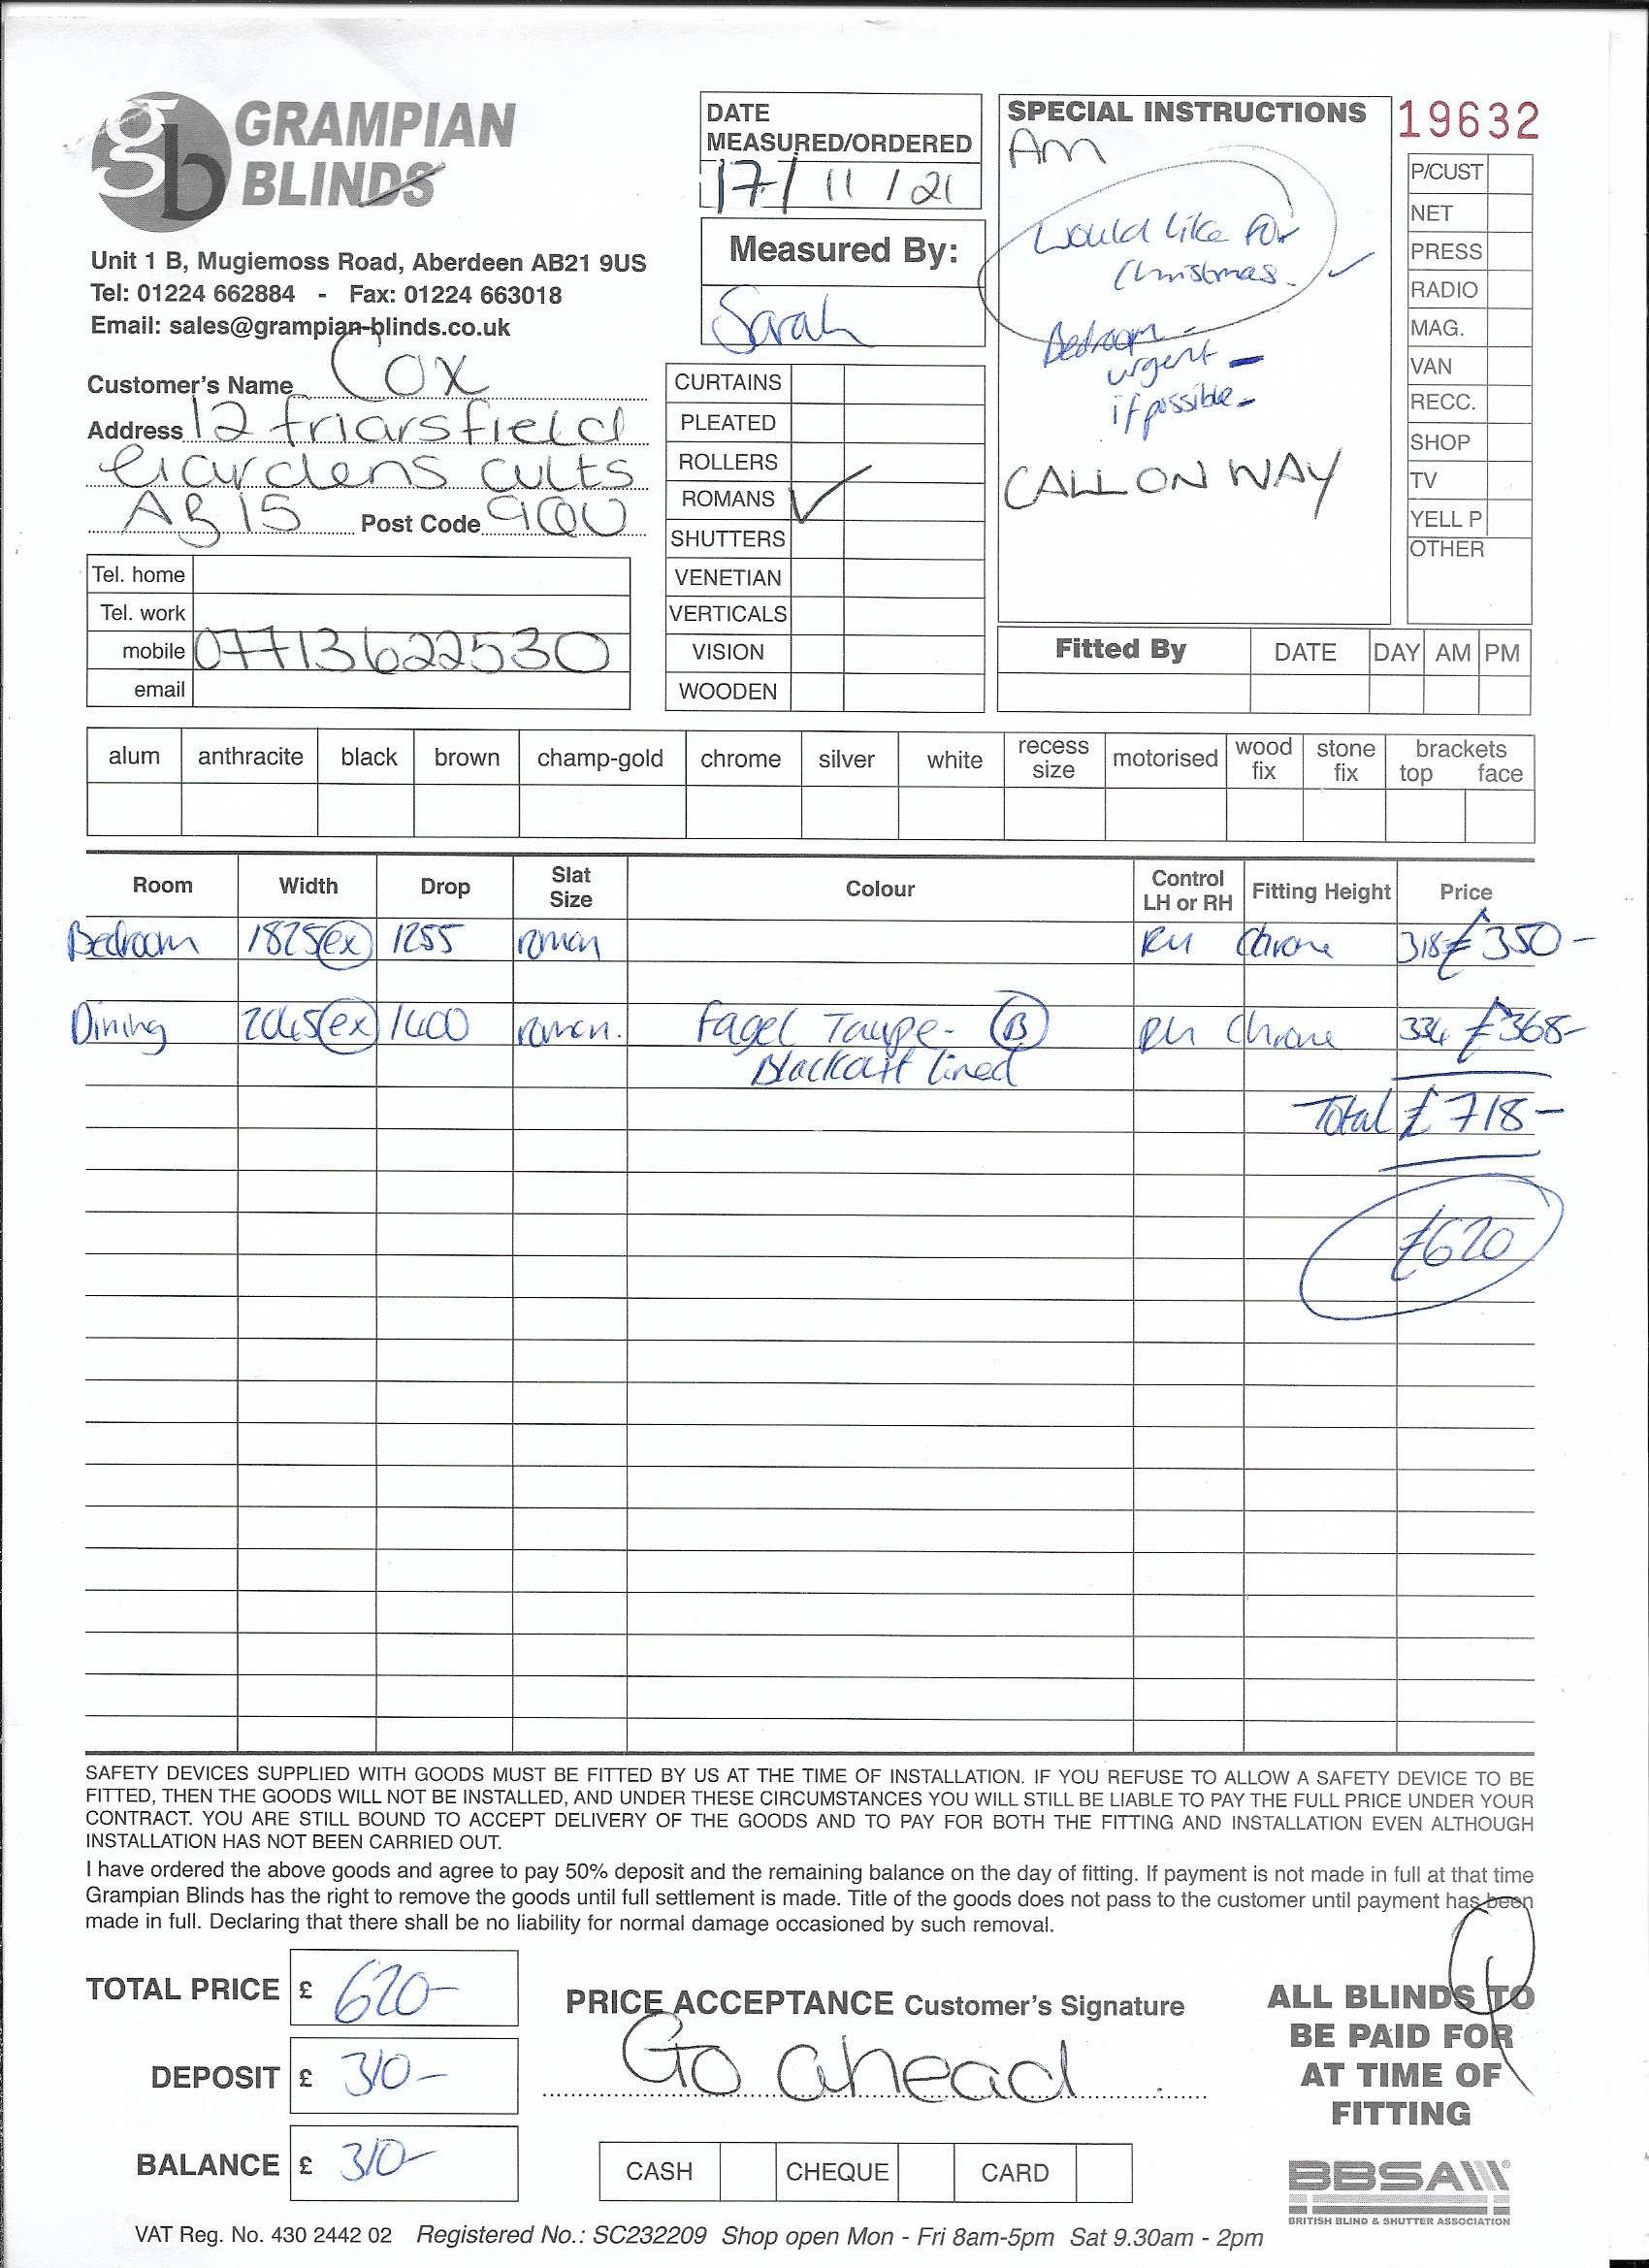 gb GRAMPIAN
BLINDS
Unit 1 B, Mugiemoss Road, Aberdeen AB21 9US
Tel: 01224 662884 - Fax: 01224 663018
Email: sales@grampian-blinds.co.uk
Customer's Name Cox
Address 12 friarsfield
Gardens cults
AB15 Post Code 9QU
Tel. home
Tel. work
mobile 07713622530
email
DATE
MEASURED/ORDERED
17/11/21
Measured By:
Sarah
CURTAINS
PLEATED
ROLLERS
ROMANS ✓
SHUTTERS
VENETIAN
VERTICALS
VISION
WOODEN
SPECIAL INSTRUCTIONS
AM
Would like for
Christmas. ✓
Bedroom -
urgent -
if possible -
CALL ON WAY
19632
P/CUST
NET
PRESS
RADIO
MAG.
VAN
RECC.
SHOP
TV
YELL P
OTHER
Fitted By DATE DAY AM PM
alum anthracite black brown champ-gold chrome silver white recess size motorised wood fix stone fix brackets top face
Room Width Drop Slat Size Colour Control LH or RH Fitting Height Price
Bedroom 1825 ex 1255 roman RH Chrome 318 £350-
Dining 2045 ex 1400 roman. Fagel Taupe - B RH Chrome 334 £368-
Blackout lined
Total £718-
£620
SAFETY DEVICES SUPPLIED WITH GOODS MUST BE FITTED BY US AT THE TIME OF INSTALLATION. IF YOU REFUSE TO ALLOW A SAFETY DEVICE TO BE
FITTED, THEN THE GOODS WILL NOT BE INSTALLED, AND UNDER THESE CIRCUMSTANCES YOU WILL STILL BE LIABLE TO PAY THE FULL PRICE UNDER YOUR
CONTRACT. YOU ARE STILL BOUND TO ACCEPT DELIVERY OF THE GOODS AND TO PAY FOR BOTH THE FITTING AND INSTALLATION EVEN ALTHOUGH
INSTALLATION HAS NOT BEEN CARRIED OUT.
I have ordered the above goods and agree to pay 50% deposit and the remaining balance on the day of fitting. If payment is not made in full at that time
Grampian Blinds has the right to remove the goods until full settlement is made. Title of the goods does not pass to the customer until payment has been
made in full. Declaring that there shall be no liability for normal damage occasioned by such removal.
TOTAL PRICE £ 620-
DEPOSIT £ 310-
BALANCE £ 310-
PRICE ACCEPTANCE Customer's Signature
Go ahead
CASH CHEQUE CARD
ALL BLINDS TO
BE PAID FOR
AT TIME OF
FITTING
BBSA
BRITISH BLIND & SHUTTER ASSOCIATION
VAT Reg. No. 430 2442 02 Registered No.: SC232209 Shop open Mon - Fri 8am-5pm Sat 9.30am - 2pm